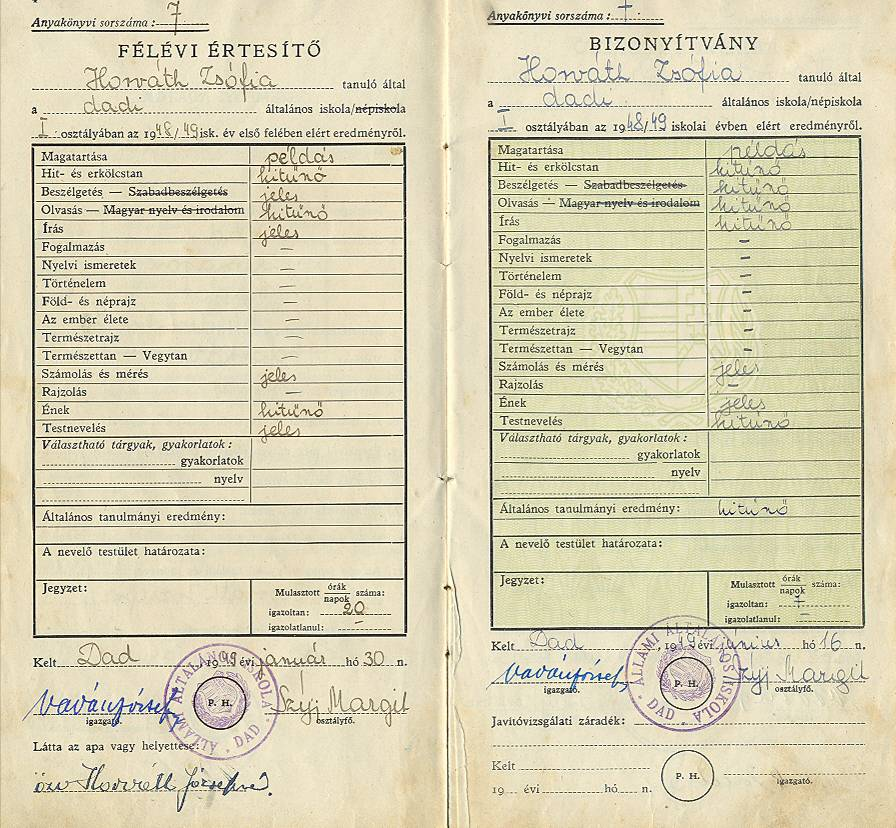 Anyakönyvi sorszáma: 7
FÉLÉVI ÉRTESÍTŐ
Horváth Zsófia tanuló által
a dadi általános iskola/népiskola
I osztályában az 1948/49 isk. év első felében elért eredményről.
Magatartása példás
Hit- és erkölcstan kitűnő
Beszélgetés — Szabadbeszélgetés jeles
Olvasás — Magyar nyelv és irodalom kitűnő
Írás jeles
Fogalmazás —
Nyelvi ismeretek —
Történelem —
Föld- és néprajz —
Az ember élete —
Természetrajz —
Természettan — Vegytan —
Számolás és mérés jeles
Rajzolás —
Ének kitűnő
Testnevelés jeles
Választható tárgyak, gyakorlatok:
gyakorlatok
nyelv
Általános tanulmányi eredmény:
A nevelő testület határozata:
Jegyzet:
Mulasztott órák napok száma:
igazoltan: 20
igazolatlanul: —
Kelt Dad 1949 évi január hó 30 n.
Vaván József Szíj Margit
igazgató. P. H. osztályfő.
ÁLLAMI ÁLTALÁNOS ISKOLA · DAD ·
Látta az apa vagy helyettese:
özv Horváth Józsefné
Anyakönyvi sorszáma: 7
BIZONYÍTVÁNY
Horváth Zsófia tanuló által
a dadi általános iskola/népiskola
I osztályában az 1948/49 iskolai évben elért eredményről.
Magatartása példás
Hit- és erkölcstan kitűnő
Beszélgetés — Szabadbeszélgetés kitűnő
Olvasás — Magyar nyelv és irodalom kitűnő
Írás kitűnő
Fogalmazás —
Nyelvi ismeretek —
Történelem —
Föld- és néprajz —
Az ember élete —
Természetrajz —
Természettan — Vegytan —
Számolás és mérés jeles
Rajzolás —
Ének jeles
Testnevelés kitűnő
Választható tárgyak, gyakorlatok:
gyakorlatok
nyelv
Általános tanulmányi eredmény: kitűnő
A nevelő testület határozata:
Jegyzet:
Mulasztott órák napok száma:
igazoltan:
igazolatlanul: —
Kelt Dad, 1949 évi június hó 16 n.
Vaván József Szíj Margit
igazgató. P. H. osztályfő.
ÁLLAMI ÁLTALÁNOS ISKOLA · DAD ·
Javítóvizsgálati záradék:
Kelt
19 évi hó n. P. H. igazgató.